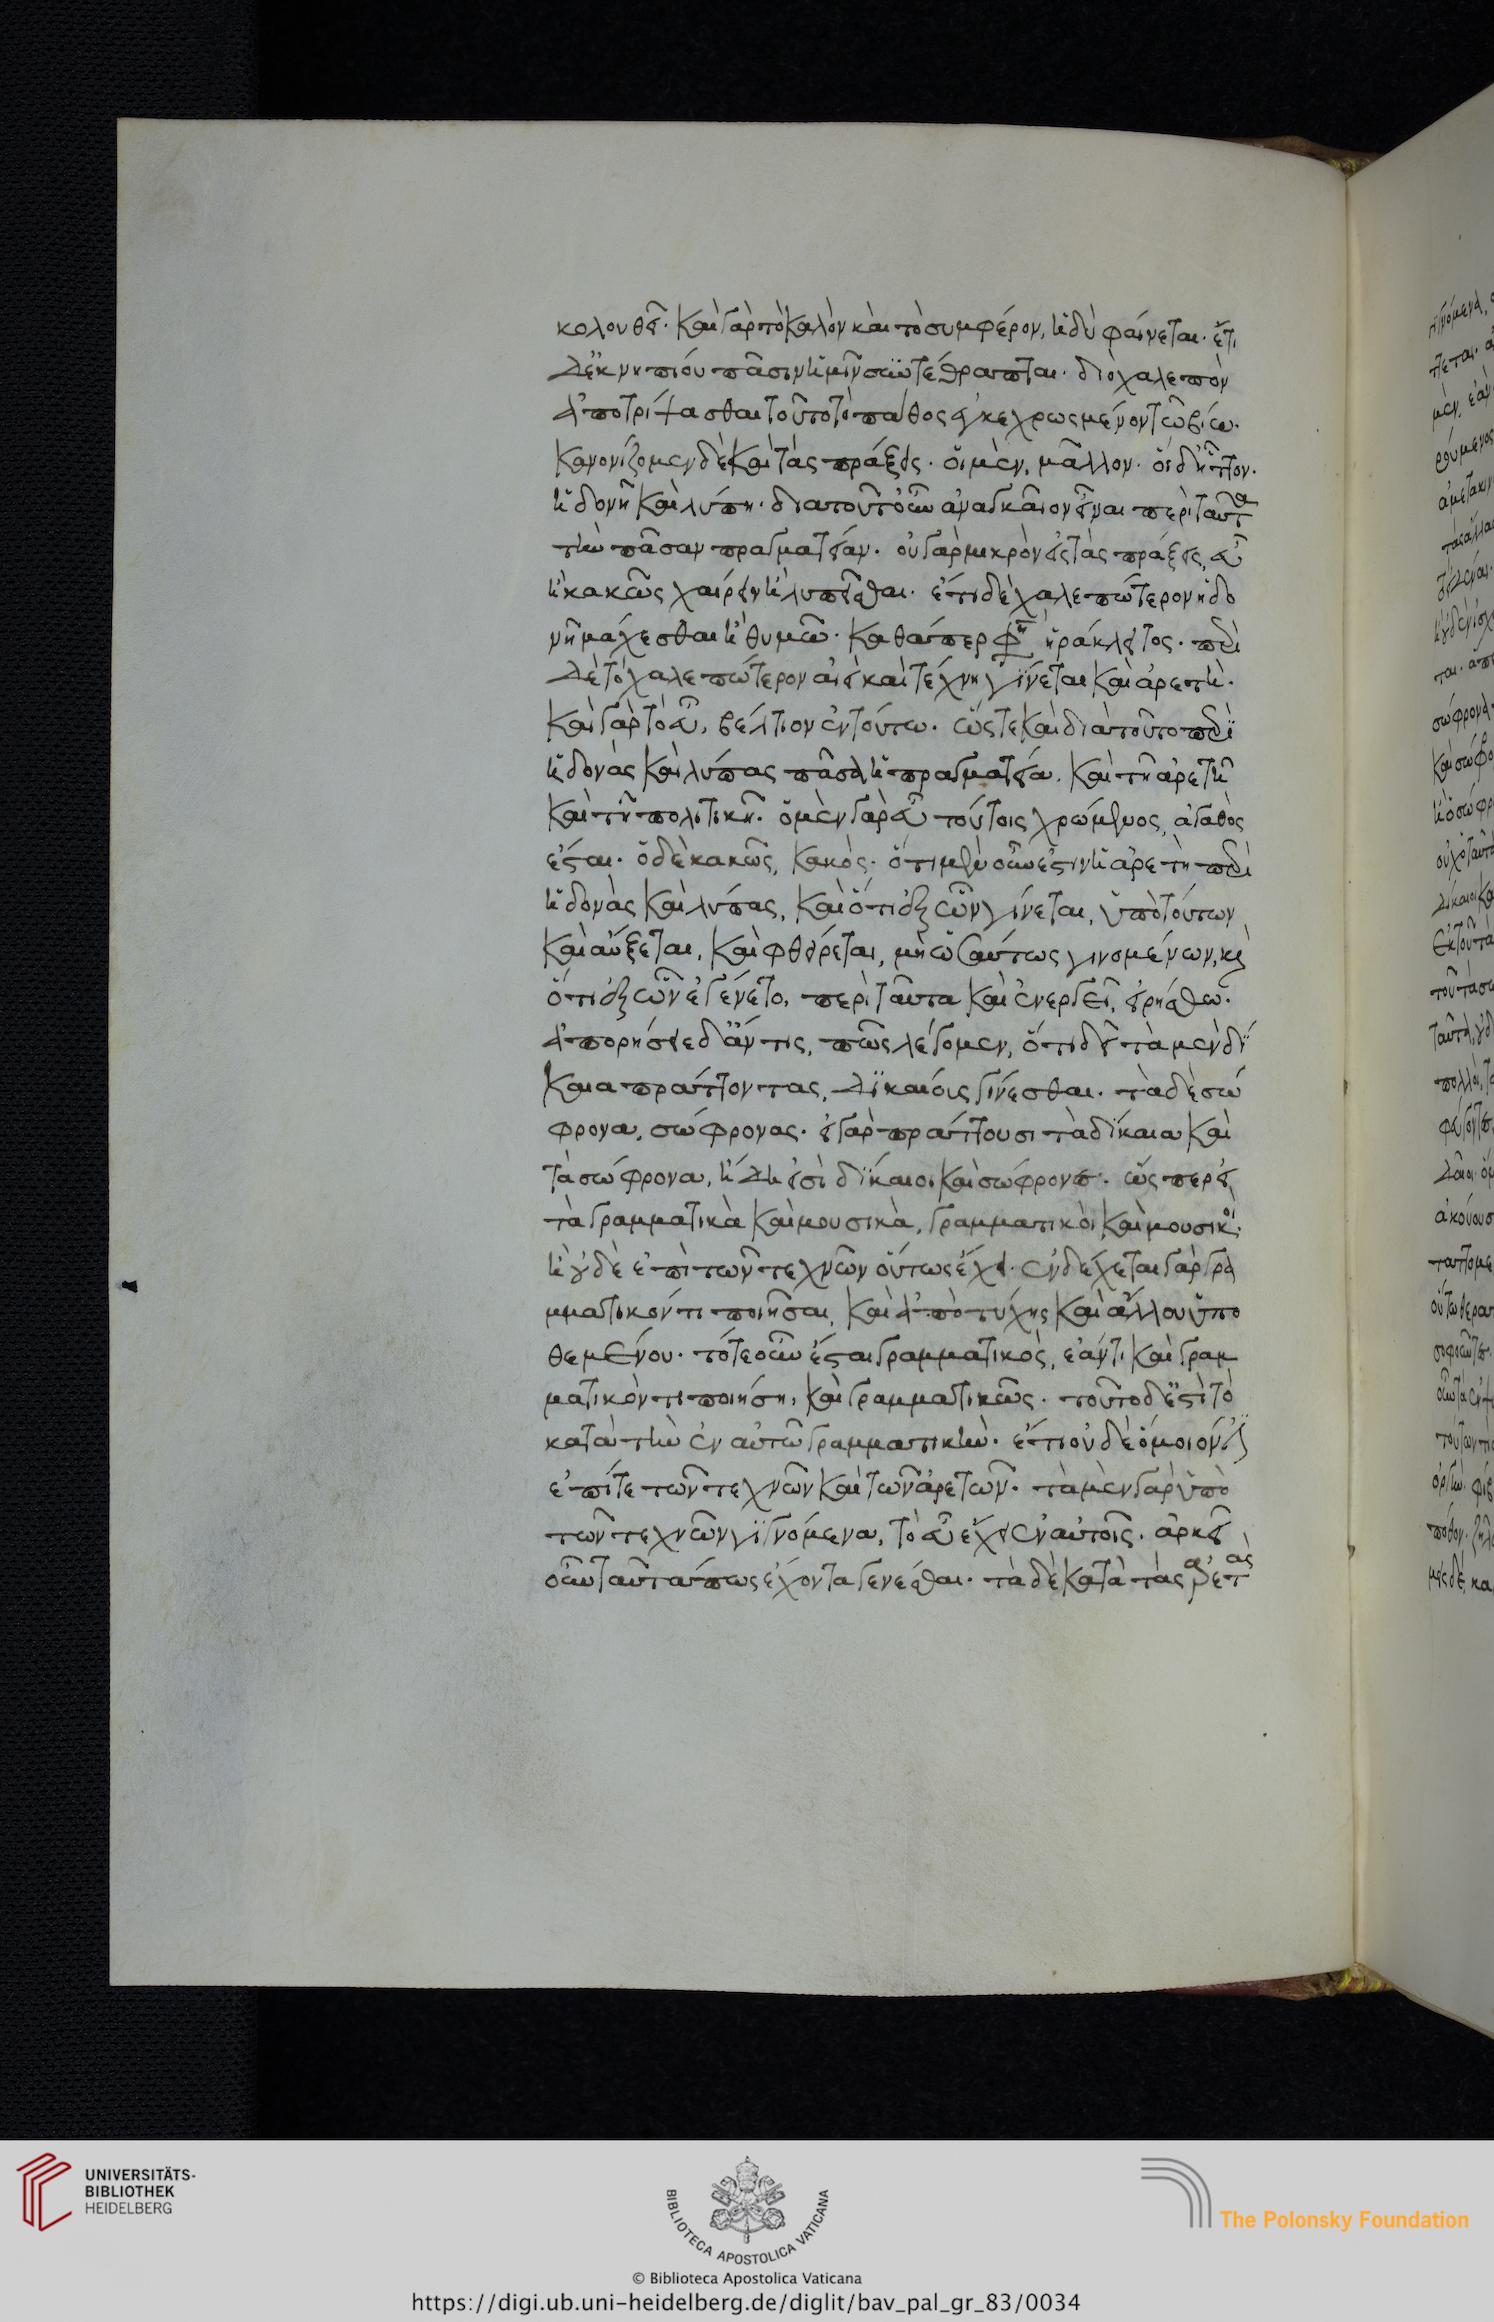 κολουθεῖ· καὶ γὰρ τὸ καλὸν καὶ τὸ συμφέρον, ἡδὺ φαίνεται· ἔτι
δ' ἐκ νηπίου πᾶσιν ἡμῖν συντέθραπται· διὸ χαλεπὸν
ἀποτρίψασθαι τοῦτο τὸ πάθος ἐγκεχρωσμένον τῶ βίω·
κανονίζομεν δὲ καὶ τὰς πράξεις· οἱ μὲν, μᾶλλον· οἱ δ' ἧττον·
ἡδονῆ καὶ λύπη· διὰ τοῦτ' οὖν ἀναγκαῖον εἶναι περὶ ταῦτα
τὴν πᾶσαν πραγματείαν· οὐ γὰρ μικρὸν εἰς τὰς πράξεις, εὖ
ἢ κακῶς χαίρειν ἢ λυπεῖσθαι· ἔτι δὲ χαλεπώτερον ἡδο
νῆ μάχεσθαι ἢ θυμῶ· καθάπερ φη ἡράκλειτος· περὶ
δὲ τὸ χαλεπώτερον αἰεὶ καὶ τέχνη γίνεται καὶ ἀρετή·
καὶ γὰρ τὸ εὖ, βέλτιον ἐν τούτω· ὥστε καὶ διὰ τοῦτο περὶ
ἡδονὰς καὶ λύπας πᾶσα ἡ πραγματεία. καὶ τῆ ἀρετῆ
καὶ τῆ πολιτικῆ· ὁ μὲν γὰρ εὖ τούτοις χρώμενος, ἀγαθὸς
ἔσται· ὁ δὲ κακῶς, κακός· ὅτι μὲν οὖν ἐστὶν ἡ ἀρετὴ περὶ
ἡδονὰς καὶ λύπας, καὶ ὅτι ἐξ ὧν γίνεται, ὑπὸ τούτων
καὶ αὔξεται, καὶ φθείρεται, μὴ ὡσαύτως γινομένων, καὶ
ὅτι ἐξ ὧν ἐγένετο, περὶ ταῦτα καὶ ἐνεργεῖ, εἰρήσθω·
ἀπορήσειε δ' ἄν τις, πῶς λέγομεν, ὅτι δεῖ τὰ μὲν δί
καια πράττοντας, δικαίοις γίνεσθαι· τὰ δὲ σώ
φρονα, σώφρονας· εἰ γὰρ πράττουσι τὰ δίκαια καὶ
τὰ σώφρονα, ἤδη εἰσὶ δίκαιοι καὶ σώφρονες· ὥσπερ εἰ
τὰ γραμματικὰ καὶ μουσικὰ, γραμματικοὶ καὶ μουσικοί·
ἢ οὐδὲ ἐπὶ τῶν τεχνῶν οὕτως ἔχει· ἐνδέχεται γὰρ γρα
μματικόν τι ποιῆσαι, καὶ ἀπὸ τύχης καὶ ἄλλου ὑπο
θεμένου· τότε οὖν ἔσται γραμματικὸς, ἐάν τι καὶ γραμ
ματικόν τι ποιήση, καὶ γραμματικῶς· τοῦτο δ' ἐστὶ τὸ
κατὰ τὴν ἐν αὐτῶ γραμματικὴν· ἔτι οὐδὲ ὅμοιόν ἐστιν
ἐπί τε τῶν τεχνῶν καὶ τῶν ἀρετῶν· τὰ μὲν γὰρ ὑπὸ
τῶν τεχνῶν γιγνόμενα, τὸ εὖ ἔχει ἐν αὐτοῖς· ἀρκεῖ
οὖν ταῦτά πως ἔχοντα γενέσθαι· τὰ δὲ κατὰ τὰς ἀρετὰς
UNIVERSITÄTS-
BIBLIOTHEK
HEIDELBERG
BIBLIOTECA APOSTOLICA VATICANA
© Biblioteca Apostolica Vaticana
The Polonsky Foundation
https://digi.ub.uni-heidelberg.de/diglit/bav_pal_gr_83/0034